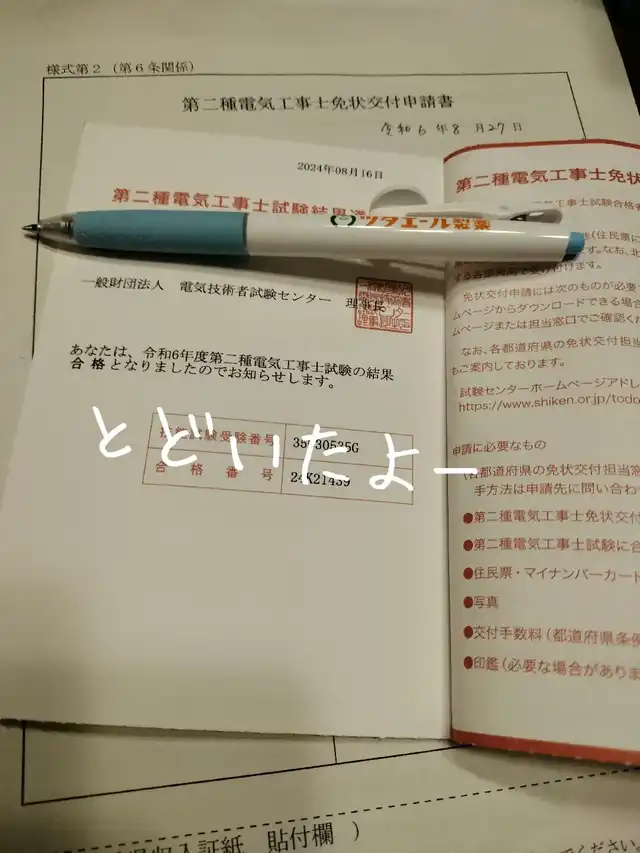 様式第2（第6条関係）
第二種電気工事士免状交付申請書
令和6年8月27日
2024年08月16日
第二種電気工事士試験結果
ツタエール製薬
一般財団法人 電気技術者試験センター 理事長
あなたは、令和6年度第二種電気工事士試験の結果
合格となりましたのでお知らせします。
とどいたよー
技能試験受験番号
合格番号 24K21439
第二種電気工事士免状
工事士試験合格者
(住民票に
す。なお、北
免状交付申請には次のものが必要
ムページからダウンロードできる場合
ムページまたは担当窓口でご確認くだ
なお、各都道府県の免状交付担当
ご案内しております。
試験センターホームページアドレ
https://www.shiken.or.jp/todo
申請に必要なもの
(各都道府県の免状交付担当窓
手方法は申請先に問い合わ
●第二種電気工事士免状交付
●第二種電気工事士試験に合
●住民票・マイナンバーカード
●写真
●交付手数料（都道府県条例
●印鑑（必要な場合がありま
収入証紙 貼付欄 ）
ください。